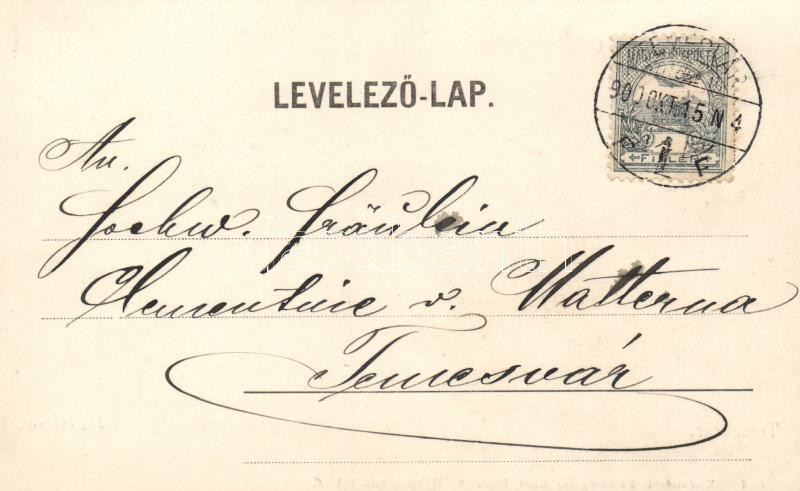 LEVELEZŐ-LAP.
MAGYAR KIR. POSTA
900 OKT. 15 N 4
FILLÉR
An.
Hochw. Fräulein
Clementine v. Matterna
Temesvár